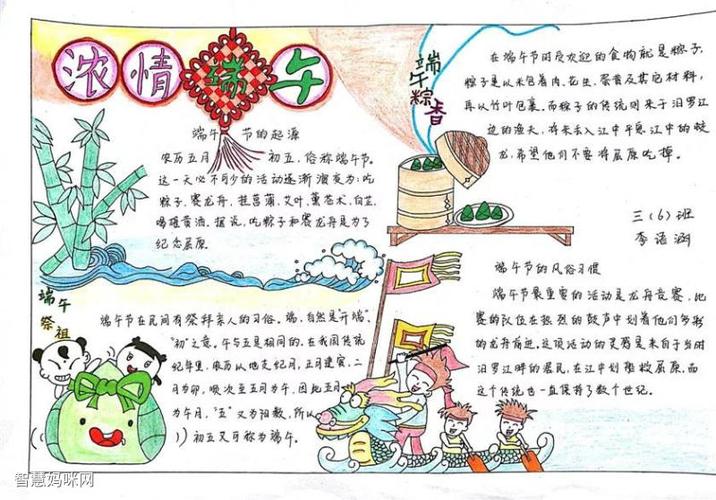 浓情端午
端午节的起源
农历五月初五，俗称端午节。
这一天必不可少的活动逐渐演变为：吃
粽子，赛龙舟，挂菖蒲、艾叶，薰苍术、白芷，
喝雄黄酒。据说，吃粽子和赛龙舟是为了
纪念屈原。
端午粽香
在端午节时受欢迎的食物就是粽子，
粽子是以米包着肉、花生、蛋黄及其它材料，
再以竹叶包裹。而粽子的传统则来于汨罗江
边的渔夫，将米丢入江中平息江中的蛟
龙，希望他们不要将屈原吃掉。
三（6）班
李语涵
端午祭祖
端午节在民间有祭拜亲人的习俗。端，自然是“开端”、
“初”之意。午与五是相同的，在我国传统
纪年里，农历以地支纪月，正月建寅，二
月为卯，顺次至五月为午，因此五月
为午月，“五”又为阳数，所以
初五又可称为端午。
端午节的风俗习惯
端午节最重要的活动是龙舟竞赛，比
赛的队伍在热烈的鼓声中划着他们多彩
的龙舟前进。这项活动的灵感是来自于当时
汨罗江畔的居民，在江中划船救屈原，而
这个传统也一直保持了数个世纪。
智慧妈咪网